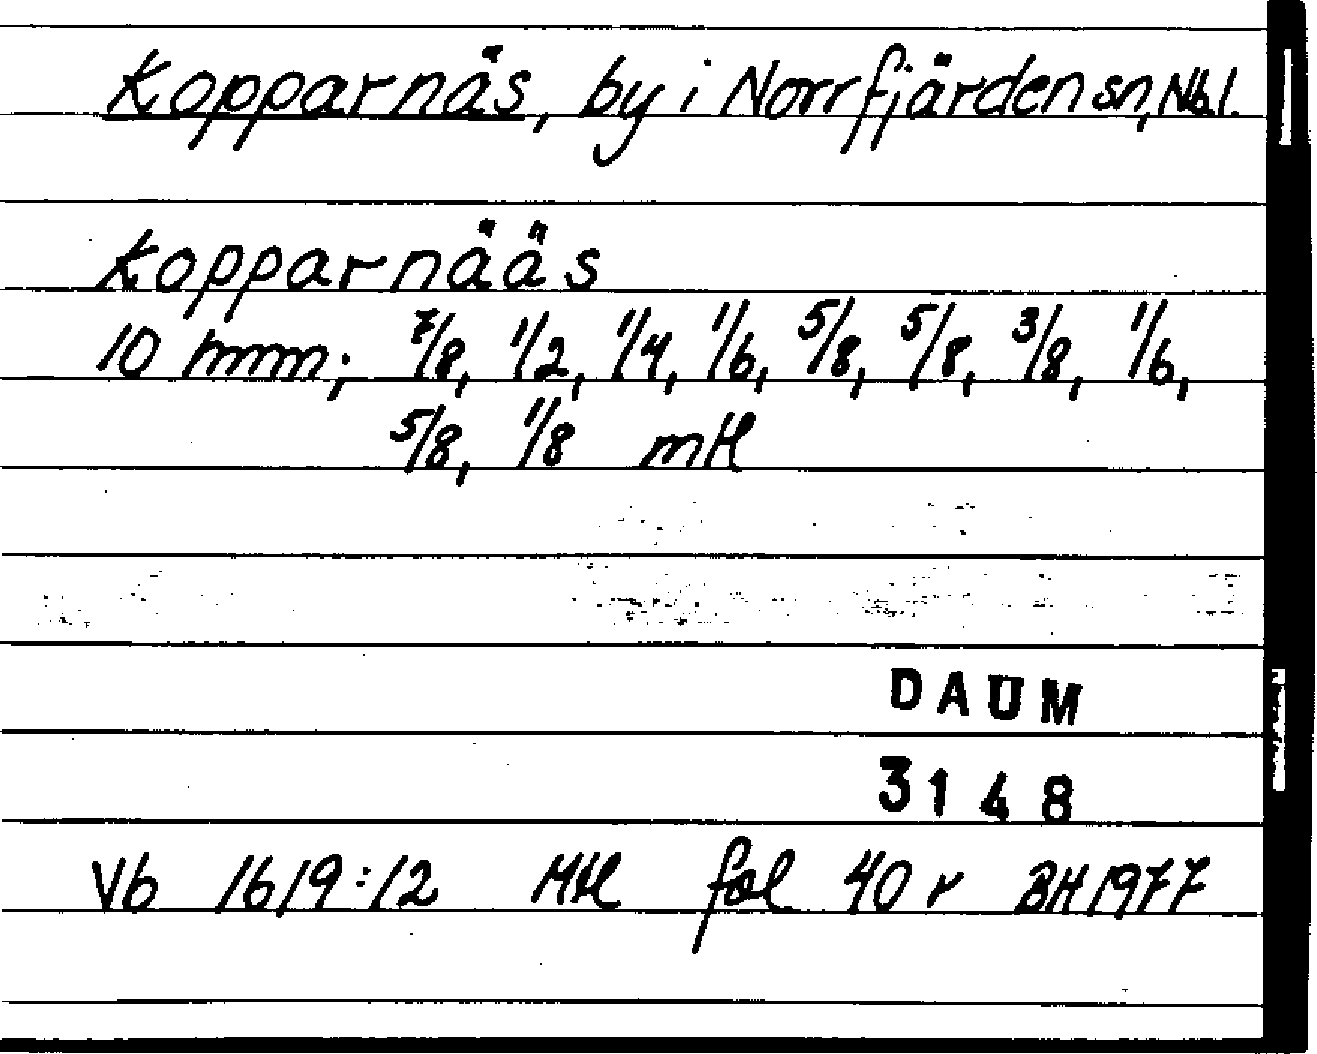 Kopparnäs, by i Norrfjärden sn, Nbl.
Kopparnääs
10 hmm; 7/8, 1/2, 1/4, 1/6, 5/8, 5/8, 3/8, 1/6,
5/8, 1/8 mtl
DAUM
3148
Vb 1619:12 Mtl fol 40 r BH 1977